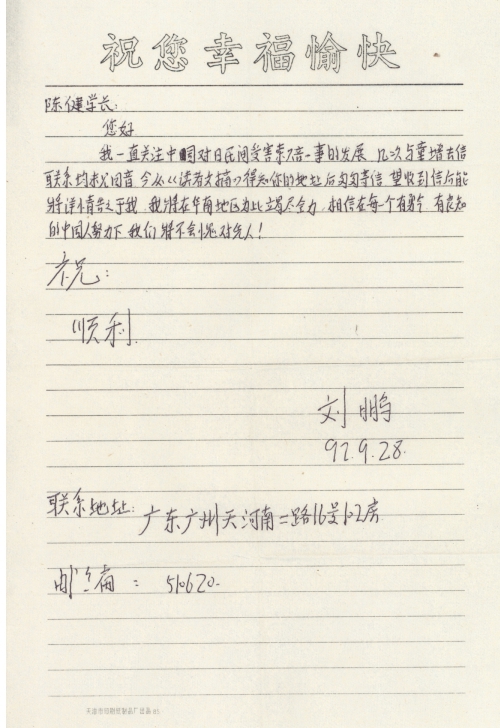 祝您幸福愉快
陈健学长：
您好
我一直关注中国对日民间受害索赔一事的发展 几次与童增去信
联系均未回音 今从《读者文摘》得知你的地址后匆匆等信 望收到信后能
将详情告之于我 我将在华南地区为此竭尽全力 相信在每一个有骨气 有良知
的中国人努力下 我们将不会愧对先人！
祝：
顺利
刘鹏
92.9.28.
联系地址：广东广州天河南二路16号102房
邮编：510620.